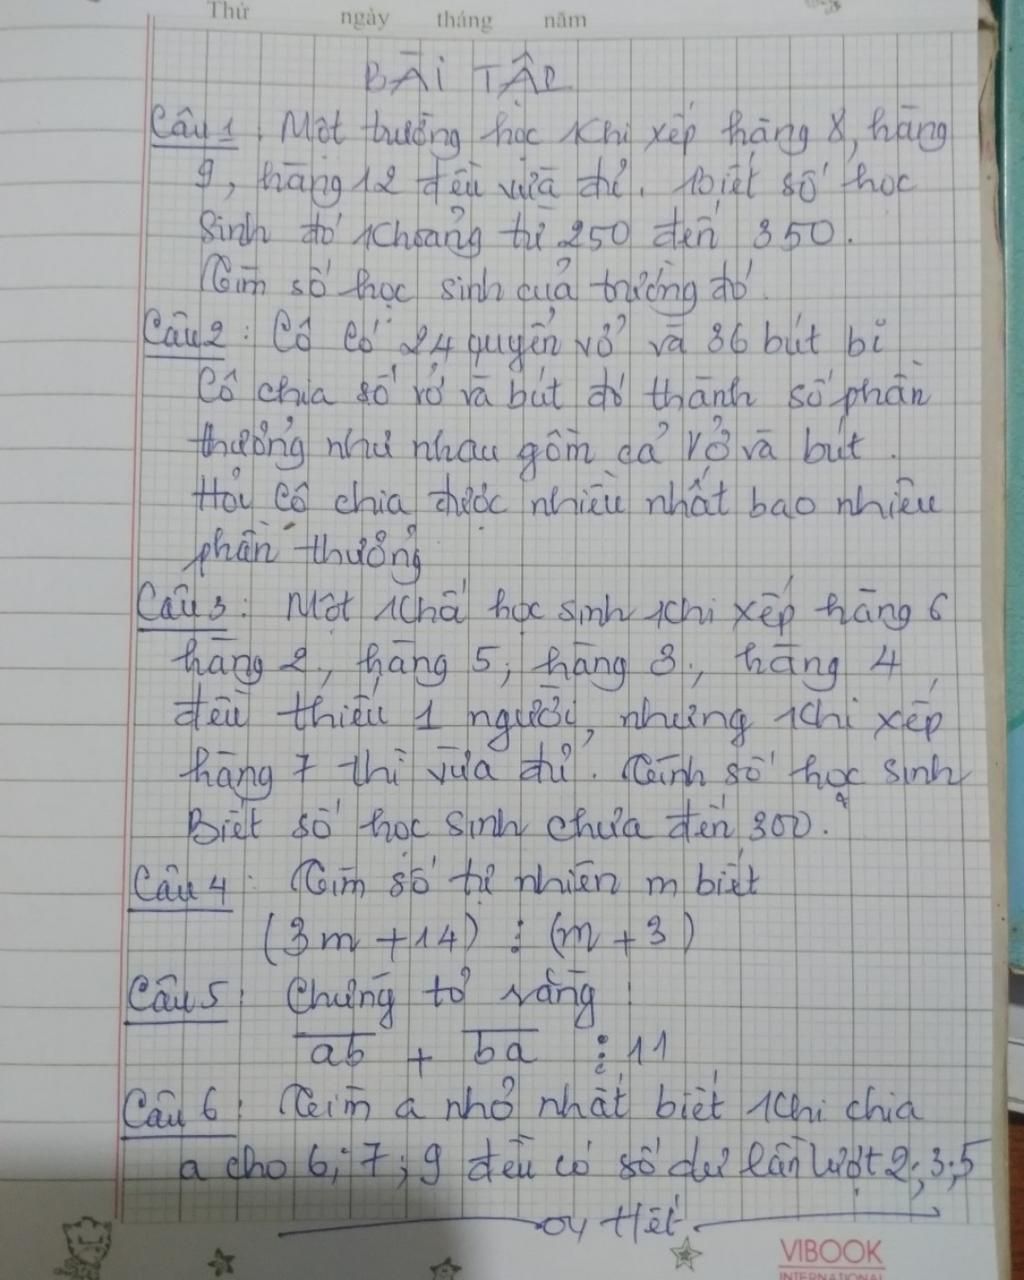 Thứ ngày tháng năm
BÀI TẬP
Câu 1. Một trường học khi xếp hàng 8, hàng
9, hàng 12 đều vừa đủ. Biết số học
sinh đó khoảng từ 250 đến 350.
Tìm số học sinh của trường đó.
Câu 2: Cô có 24 quyển vở và 36 bút bi
Cô chia số vở và bút đó thành số phần
thưởng như nhau gồm cả vở và bút.
Hỏi cô chia được nhiều nhất bao nhiêu
phần thưởng
Câu 3: Một khối học sinh khi xếp hàng 6
hàng 2, hàng 5, hàng 3, hàng 4,
đều thiếu 1 người, nhưng khi xếp
hàng 7 thì vừa đủ. Tính số học sinh
Biết số học sinh chưa đến 300.
Câu 4: Tìm số tự nhiên m biết
(3m + 14) ⋮ (m + 3)
Câu 5: Chứng tỏ rằng:
a̅b̅ + b̅a̅ ⋮ 11
Câu 6: Tìm a nhỏ nhất biết khi chia
a cho 6; 7; 9 đều có số dư lần lượt 2; 3; 5
Hết
VIBOOK
INTERNATIONAL